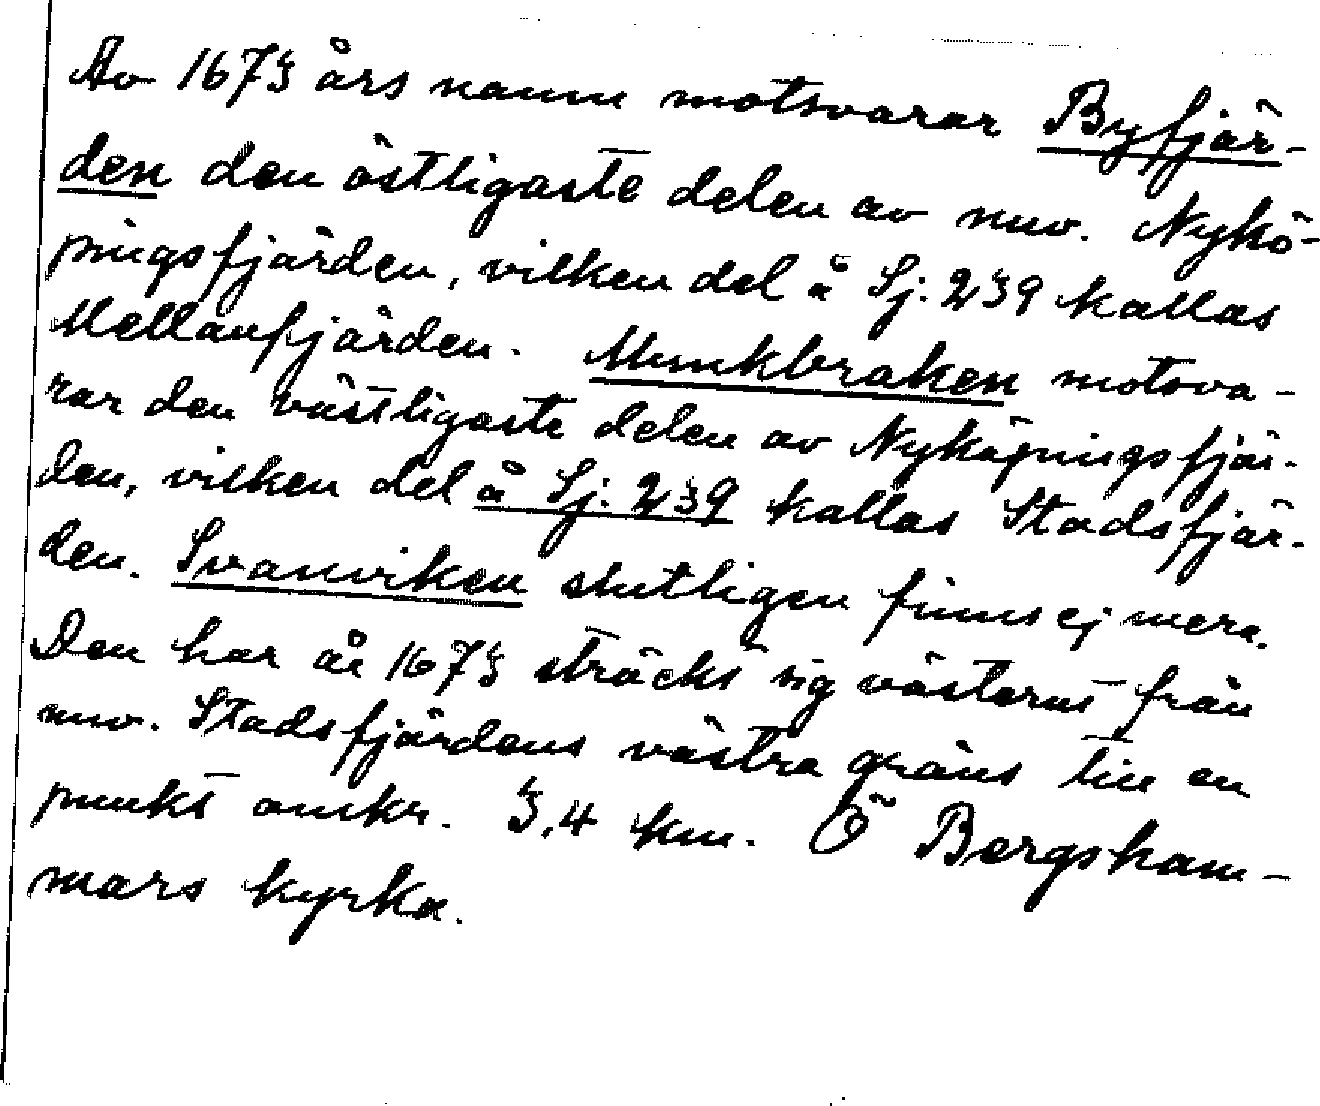 Av 1673 års namn motsvarar Byfjär-
den den östligaste delen av nuv. Nykö-
pingsfjärden, vilken del å Sj. 239 kallas
Mellanfjärden. Munkbraken motsva-
rar den västligaste delen av Nyköpingsfjär-
den, vilken del å Sj. 239 kallas Stadsfjär-
den. Svanviken slutligen finns ej mera.
Den har år 1673 sträckt sig västerut från
nuv. Stadsfjärdens västra gräns till en
punkt omkr. 3,4 km. Ö Bergsham-
mars kyrka.